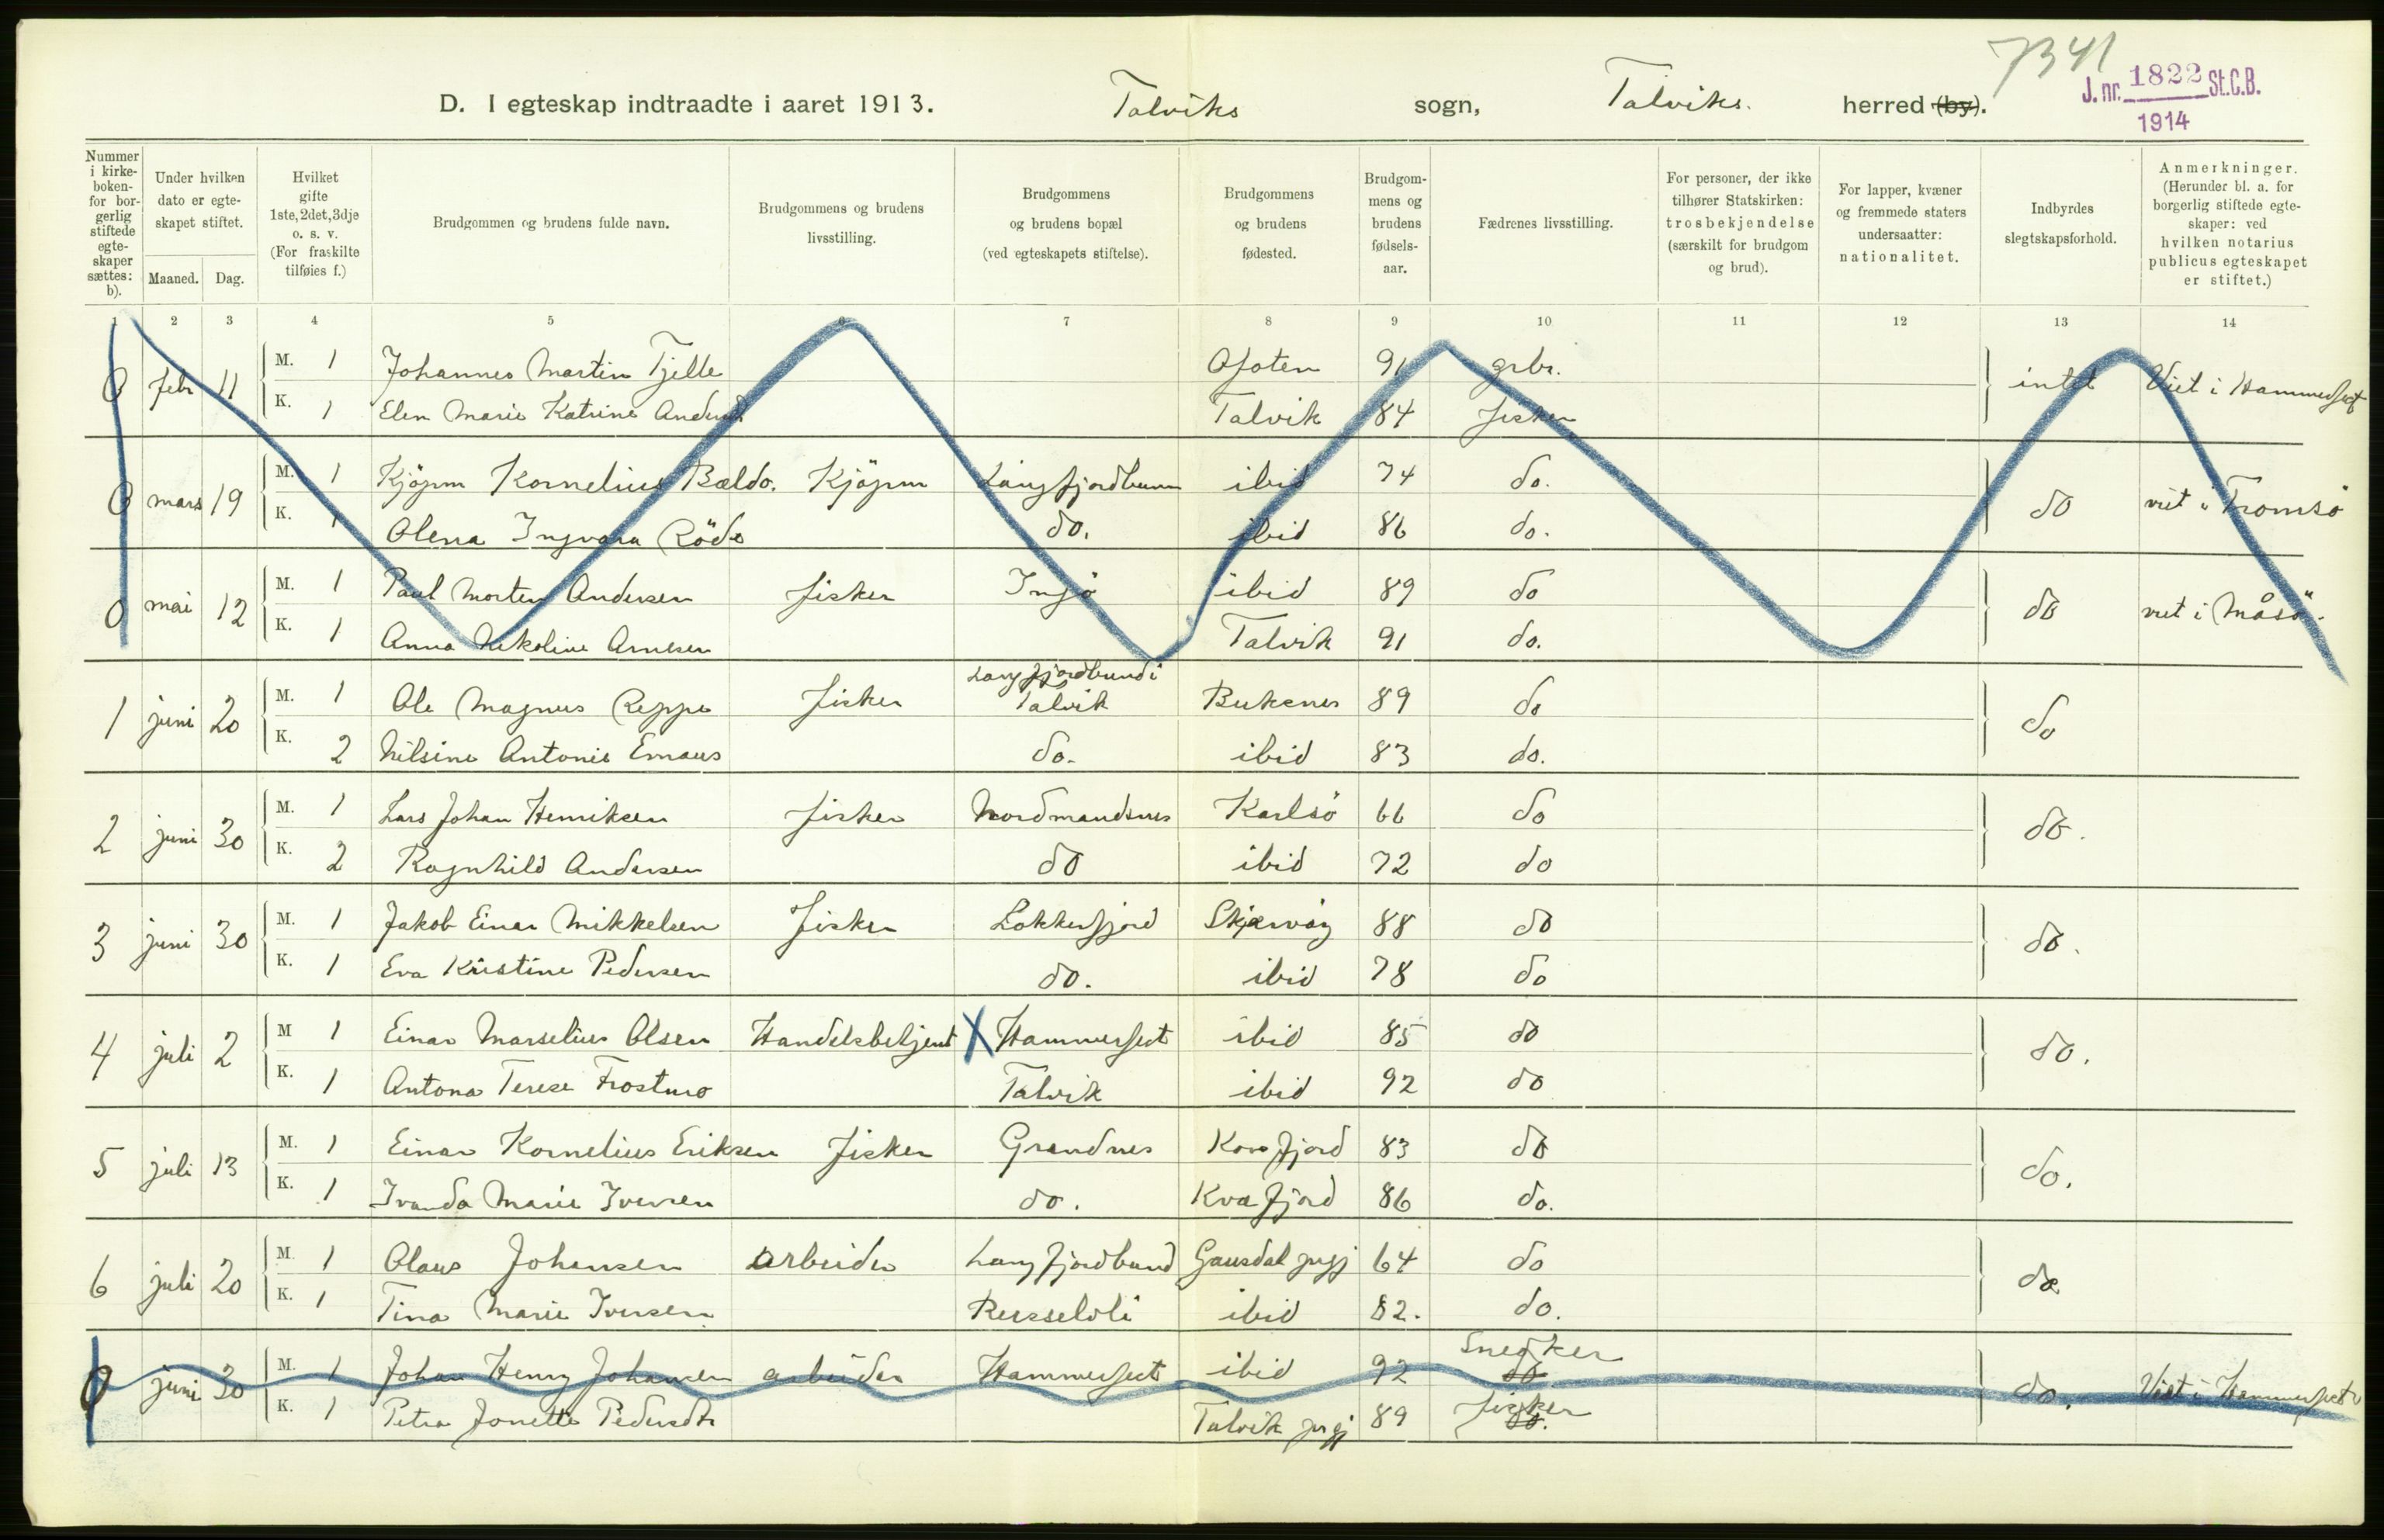 7341
D. I egteskap indtraadte i aaret 1913. Talviks sogn, Talviks. herred (by).
J. nr. 1822 St.C.B.
1914
Nummer i kirkeboken- for borgerlig stiftede egteskaper sættes: b).
Under hvilken dato er egteskapet stiftet.
Maaned. Dag.
Hvilket gifte 1ste, 2det, 3dje o. s. v. (For fraskilte tilføies f.)
Brudgommen og brudens fulde navn.
Brudgommens og brudens livsstilling.
Brudgommens og brudens bopæl (ved egteskapets stiftelse).
Brudgommens og brudens fødested.
Brudgommens og brudens fødselsaar.
Fædrenes livsstilling.
For personer, der ikke tilhører Statskirken: trosbekjendelse (særskilt for brudgom og brud).
For lapper, kvæner og fremmede staters undersaatter: nationalitet.
Indbyrdes slegtskapsforhold.
Anmerkninger. (Herunder bl. a. for borgerlig stiftede egteskaper: ved hvilken notarius publicus egteskapet er stiftet.)
1 2 3 4 5 6 7 8 9 10 11 12 13 14
0 febr 11 M. 1 Johannes Martin Tjelle Ofoten 91 grbr. intet Viet i Hammerfest
K. 1 Elen Marie Katrine Andersd Talvik 84 fisker
0 mars 19 M. 1 Kjøpm Kornelius Bældo. Kjøpm Langfjordbunn ibid 74 do. do viet i Tromsö
K. 1 Olena Ingvara Röde do. ibid 86 do.
0 mai 12 M. 1 Paul Morten Andersen fisker Ingö ibid 89 do do viet i Måsö.
K. 1 Anna Nikoline Arnesen Talvik 91 do.
1 juni 20 M. 1 Ole Magnus Reppe fisker Langfjordbund i Talvik Buksnes 89 do do
K. 2 Nilsine Antonie Emaus do. ibid 83 do.
2 juni 30 M. 1 Lars Johan Henriksen fisker Nordmandsnes Karlsö 66 do do.
K. 2 Ragnhild Andersen do ibid 72 do
3 juni 30 M. 1 Jakob Einar Mikkelsen fisker Lokkerfjord Skjærvöy 88 do do.
K. 1 Eva Kristine Pedersen do. ibid 78 do
4 juli 2 M 1 Einar Marselius Olsen Handelsbetjent X Hammerfest ibid 85 do do.
K. 1 Antona Terese Frostmo Talvik ibid 92 do
5 juli 13 M. 1 Einar Kornelius Eriksen fisker Grandnes Korsfjord 83 do do.
K. 1 Ivanda Marie Iversen do. Kvæfjord 86 do.
6 juli 20 M. 1 Olaus Johansen arbeider Langfjordbund Gausdal prgj 64 do do
K. 1 Tina Marie Iversen Russelvli ibid 82. do.
0 juni 30 M. 1 Johan Henry Johansen arbeider Hammerfest ibid 92 Snedker do do. Viet i Hammerfest
K. 1 Petra Jonette Pedersdtr Talvik prgj 89 fisker do.